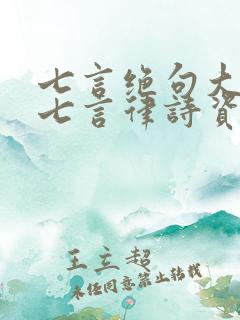 七言绝句大
七言律詩資
王立超
未经同意禁止转载